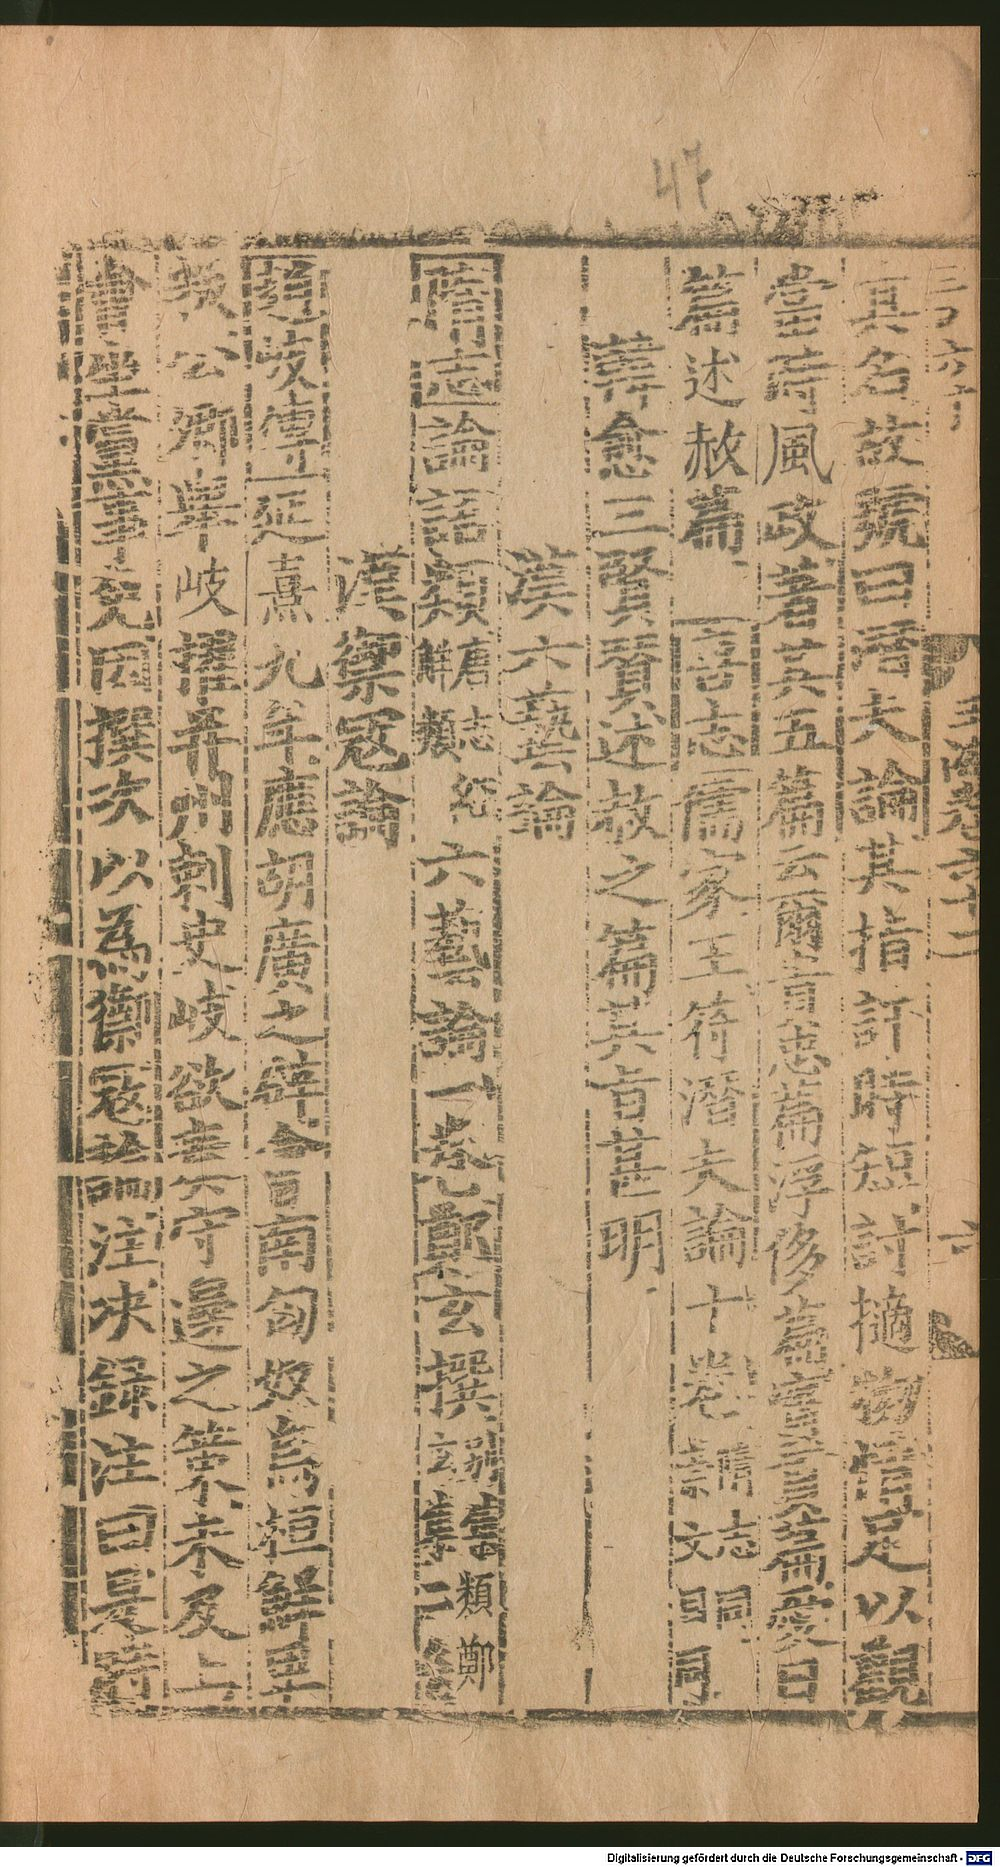 47
玉海卷六十二
六
其名故號曰潛夫論其指訐時短討擿物情足以觀見
當時風政著其五篇云爾貴忠篇浮侈篇實貢篇愛日
篇述赦篇 唐志儒家王符潛夫論十卷隋志同崇文目同
韓愈三賢贊述赦之篇其旨甚明
漢六藝論
隋志論語類唐志經解類六藝論一卷鄭玄撰別集類鄭玄集二卷
漢禦寇論
趙岐傳延熹九年應胡廣之辟會南匈奴烏桓鮮卑
叛公卿舉岐擢并州刺史岐欲奏守邊之策未及上
會坐黨事免因撰次以為禦寇論注決錄注曰是時
Digitalisierung gefördert durch die Deutsche Forschungsgemeinschaft - DFG